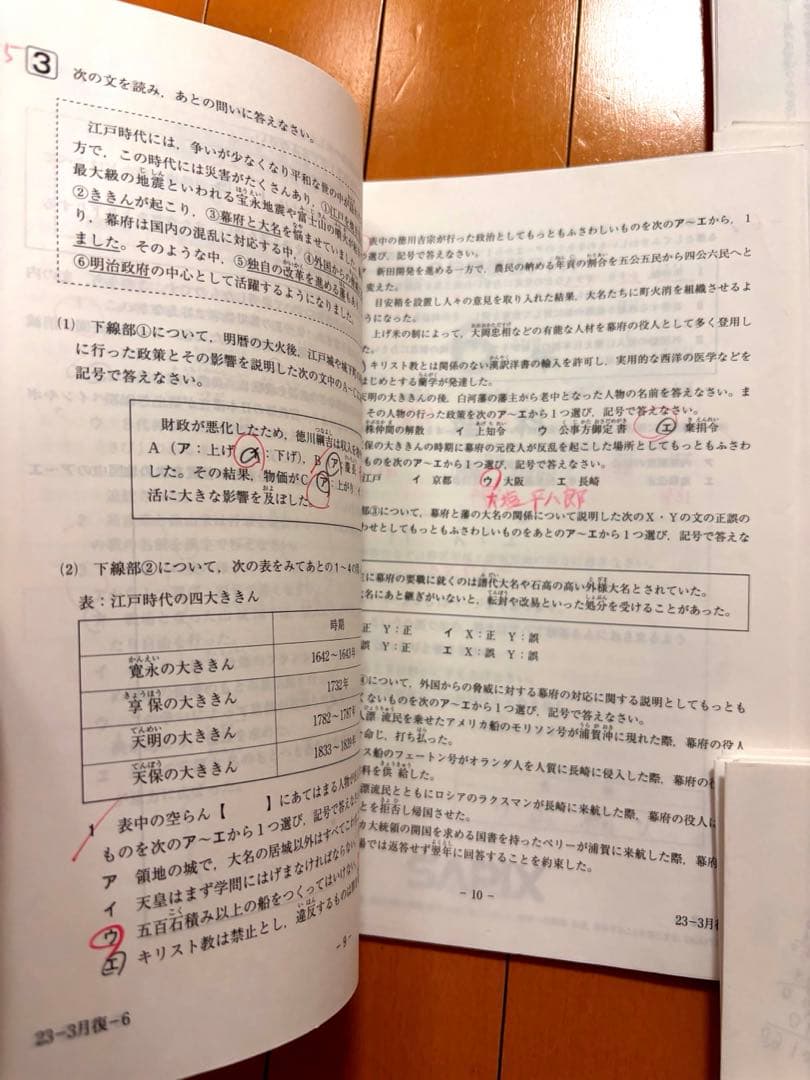 5
3 次の文を読み，あとの問いに答えなさい。
江戸時代には，争いが少なくなり平和な世の中が
方で，この時代には災害がたくさんあり，①江戸を
最大級の地震といわれる宝永地震や富士山の噴火が
②ききんが起こり，③幕府と大名を悩ませていました
り，幕府は国内の混乱に対応する中，④外国からの
ました。そのような中，⑤独自の改革を進める藩も
⑥明治政府の中心として活躍するようになりました。
(1) 下線部①について，明暦の大火後，江戸城や城下
に行った政策とその影響を説明した次の文中のA～C
記号で答えなさい。
財政が悪化したため，徳川綱吉は収入を
A（ア：上げ イ：下げ），B（ア：慶長
した。その結果，物価がC（ア：上がり
活に大きな影響を及ぼした。
(2) 下線部②について，次の表をみてあとの1～4の
表：江戸時代の四大ききん
時期
寛永の大ききん 1642～1643年
享保の大ききん 1732年
天明の大ききん 1782～1787年
天保の大ききん 1833～1839年
1 表中の空らん【 】にあてはまる人物が
ものを次のア～エから1つ選び，記号で答えな
ア 領地の城で，大名の居城以外はすべてこわ
イ 天皇はまず学問にはげまなければならない
ウ 五百石積み以上の船をつくってはいけない
エ キリスト教は禁止とし，違反するものは
－9－
23－3月復－6
表中の徳川吉宗が行った政治としてもっともふさわしいものを次のア～エから，1
つ選び，記号で答えなさい。
新田開発を進める一方で，農民の納める年貢の割合を五公五民から四公六民へと
変えた。
目安箱を設置し人々の意見を取り入れた結果，大名たちに町火消を組織させるよ
うになった。
上げ米の制によって，大岡忠相などの有能な人材を幕府の役人として多く登用し
た。
キリスト教とは関係のない漢訳洋書の輸入を許可し，実用的な西洋の医学などを
はじめとする蘭学が発達した。
天明の大ききんの後，白河藩の藩主から老中となった人物の名前を答えなさい。ま
その人物の行った政策を次のア～エから1つ選び，記号で答えなさい。
株仲間の解散 イ 上知令 ウ 公事方御定書 エ 棄捐令
保の大ききんの時期に幕府の元役人が反乱を起こした場所としてもっともふさわ
次のア～エから1つ選び，記号で答えなさい。
江戸 イ 京都 ウ 大阪 エ 長崎
大塩平八郎
部③について，幕府と藩の大名の関係について説明した次のX・Yの文の正誤の
わせとしてもっともふさわしいものをあとのア～エから1つ選び，記号で答えな
に幕府の要職に就くのは譜代大名や石高の高い外様大名とされていた。
名にあと継ぎがいないと，転封や改易といった処分を受けることがあった。
正 Y：正 イ X：正 Y：誤
誤 Y：正 エ X：誤 Y：誤
について，外国からの脅威に対する幕府の対応に関する説明としてもっとも
てないものを次のア～エから1つ選び，記号で答えなさい。
人漂流民を乗せたアメリカ船のモリソン号が浦賀沖に現れた際，幕府の役人
命じ，打ち払った。
ス船のフェートン号がオランダ人を人質に長崎に侵入した際，幕府の役
料を供給した。
漂流民とともにロシアのラクスマンが長崎に来航した際，幕府の役人は
とを拒否し帰国させた。
カ大統領の開国を求める国書を持ったペリーが浦賀に来航した際，幕府
場では返答せず翌年に回答することを約束した。
－10－
23－3月復